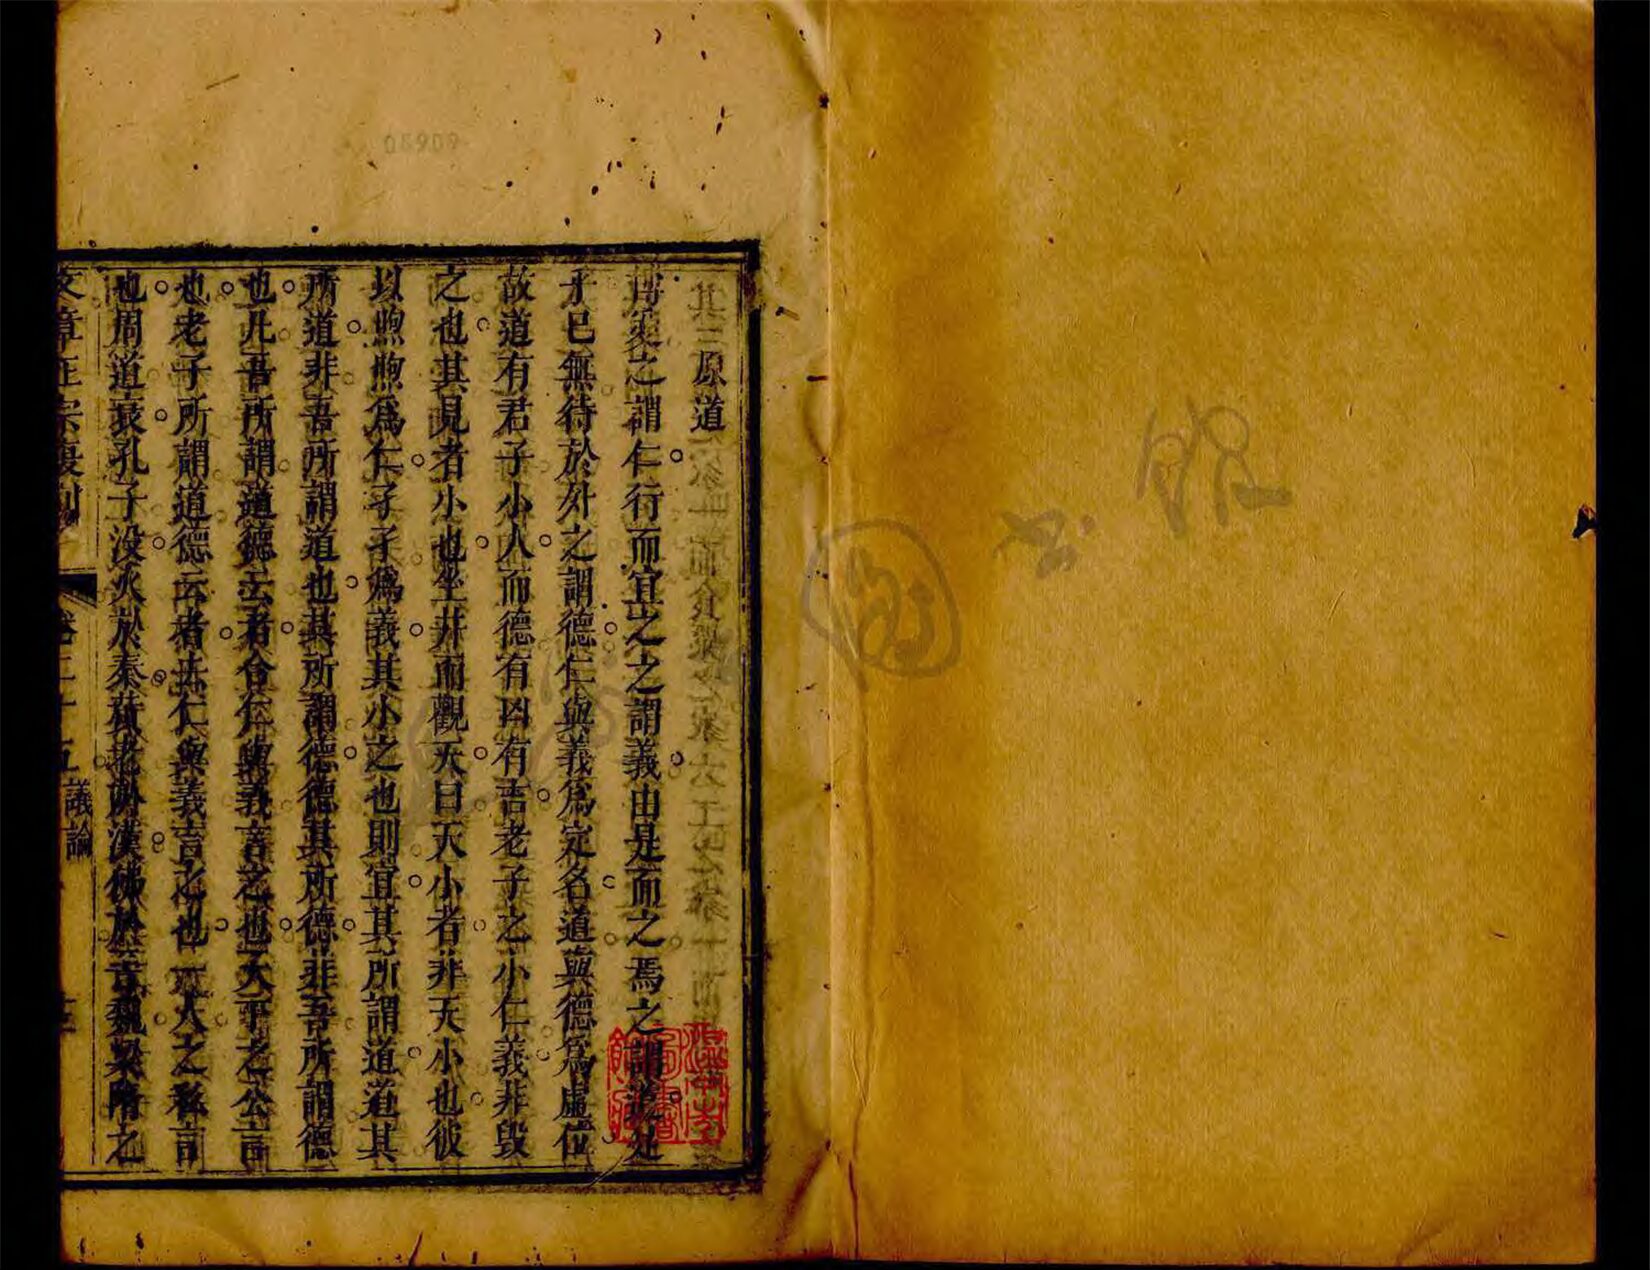 其三原道
博愛之謂仁行而宜之之謂義由是而之焉之謂道足
乎已無待於外之謂德仁與義爲定名道與德爲虛位
故道有君子小人而德有凶有吉老子之小仁義非毀
之也其見者小也坐井而觀天曰天小者非天小也彼
以煦煦爲仁孑孑爲義其小之也則宜其所謂道道其
所道非吾所謂道也其所謂德德其所德非吾所謂德
也凡吾所謂道德云者合仁與義言之也天下之公言
也老子所謂道德云者去仁與義言之也一人之私言
也周道衰孔子沒火於秦黃老於漢佛於晉魏梁隋之
文章正宗復刻
議論
05909